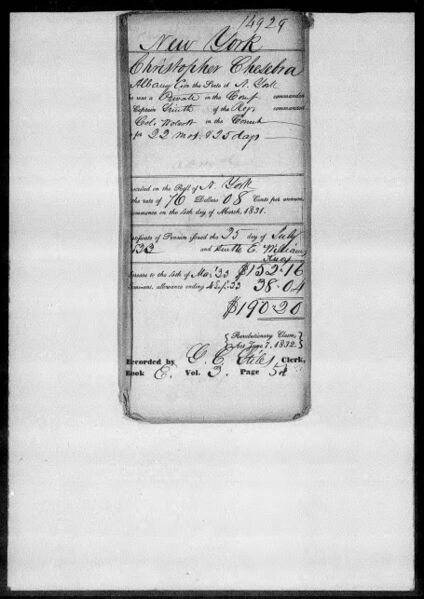 14929
New York
Christopher Chesebra
Albany Co in the State of N. York
was a Private in the Comp commanded
Captain Smith of the Reg. commanded
Col. Wolcott in the Connct
for 22 mos. & 25 days
scribed on the Roll of N. York
the rate of 76 Dollars 08 Cents per annum,
commence on the 4th day of March, 1831.
rtificate of Pension issued the 25 day of July
1833 and sent E. William
Knox
rrears to the 4th of Mar '33 $152.16
-annual allowance ending 4 Sep. '33 38.04
$190.20
Revolutionary Claim,
Act June 7, 1832.
Recorded by C. C. Stiles Clerk,
Book E. Vol. 3. Page 54